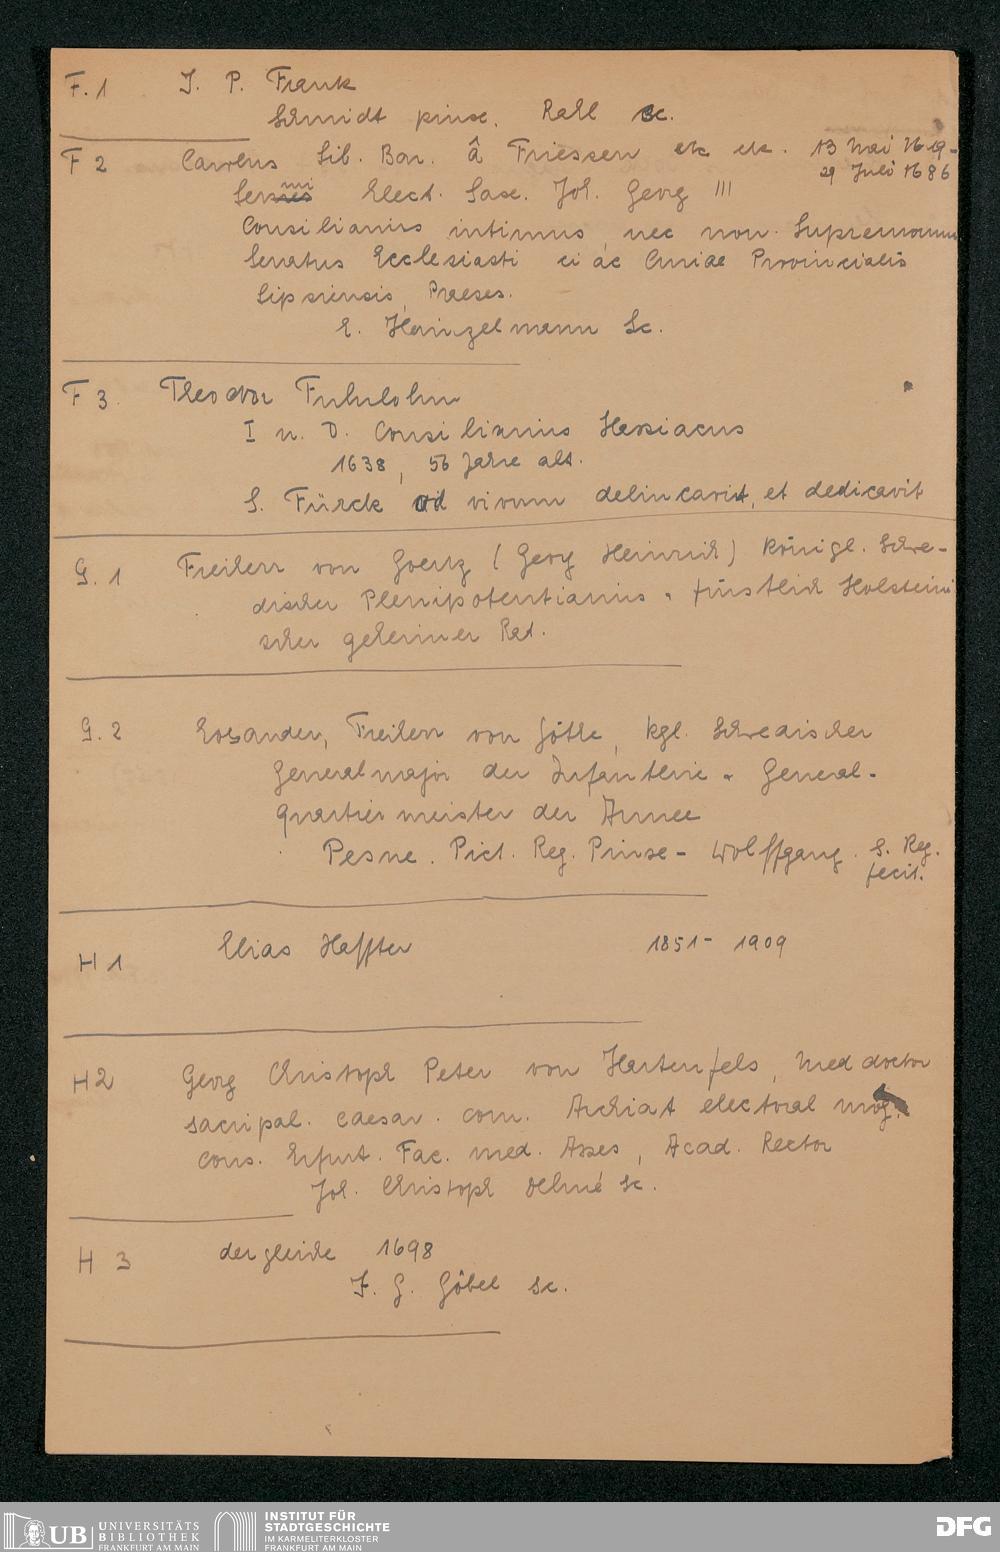 F. 1 J. P. Frank
Schmidt pinx. Rahl sc.
F 2 Carolus Lib. Bar. â Friessen etc etc. 13 Mai 1619-
29 Juli 1686
Seressmi Elect. Sax. Joh. Georg III
Consilianius intimus, nec non Supremomm
Senatus Ecclesiasti ci ac Curiae Provincialis
Lipsiensis, Praeses.
E. Hainzelmann Sc.
F 3. Theodor
I u. D. Consilianius Hassiacus
1638, 56 Jahre alt.
S. Fürck ad vivum delineavit, et dedicavit
G. 1 Freiherr von Goertz (Georg Heinrich) Königl. Schwe-
discher Plenipotentianius u. fürstlich Holsteini
scher geheimer Rat.
G. 2 Eosander, Freiherr von Göthe, kgl. Schwedischer
Generalmajor der Infanterie u. General-
quartiermeister der Armee
Pesne. Pict. Reg. Pinxe - Wolffgang. S. Reg.
fecit.
H 1 Elias Haffter 1851 - 1909
H 2 Georg Christoph Peter von Hartenfels, Med doctor
sacri pal. caesar. com. Archiat electoral mog.
cons. Erfurt. Fac. med. Asses, Acad. Rector
Joh. Christoph Oehmé sc.
H 3 dergleiche 1698
J. G. Göbel sc.
UB UNIVERSITÄTS
BIBLIOTHEK
FRANKFURT AM MAIN
INSTITUT FÜR
STADTGESCHICHTE
IM KARMELITERKLOSTER
FRANKFURT AM MAIN
DFG